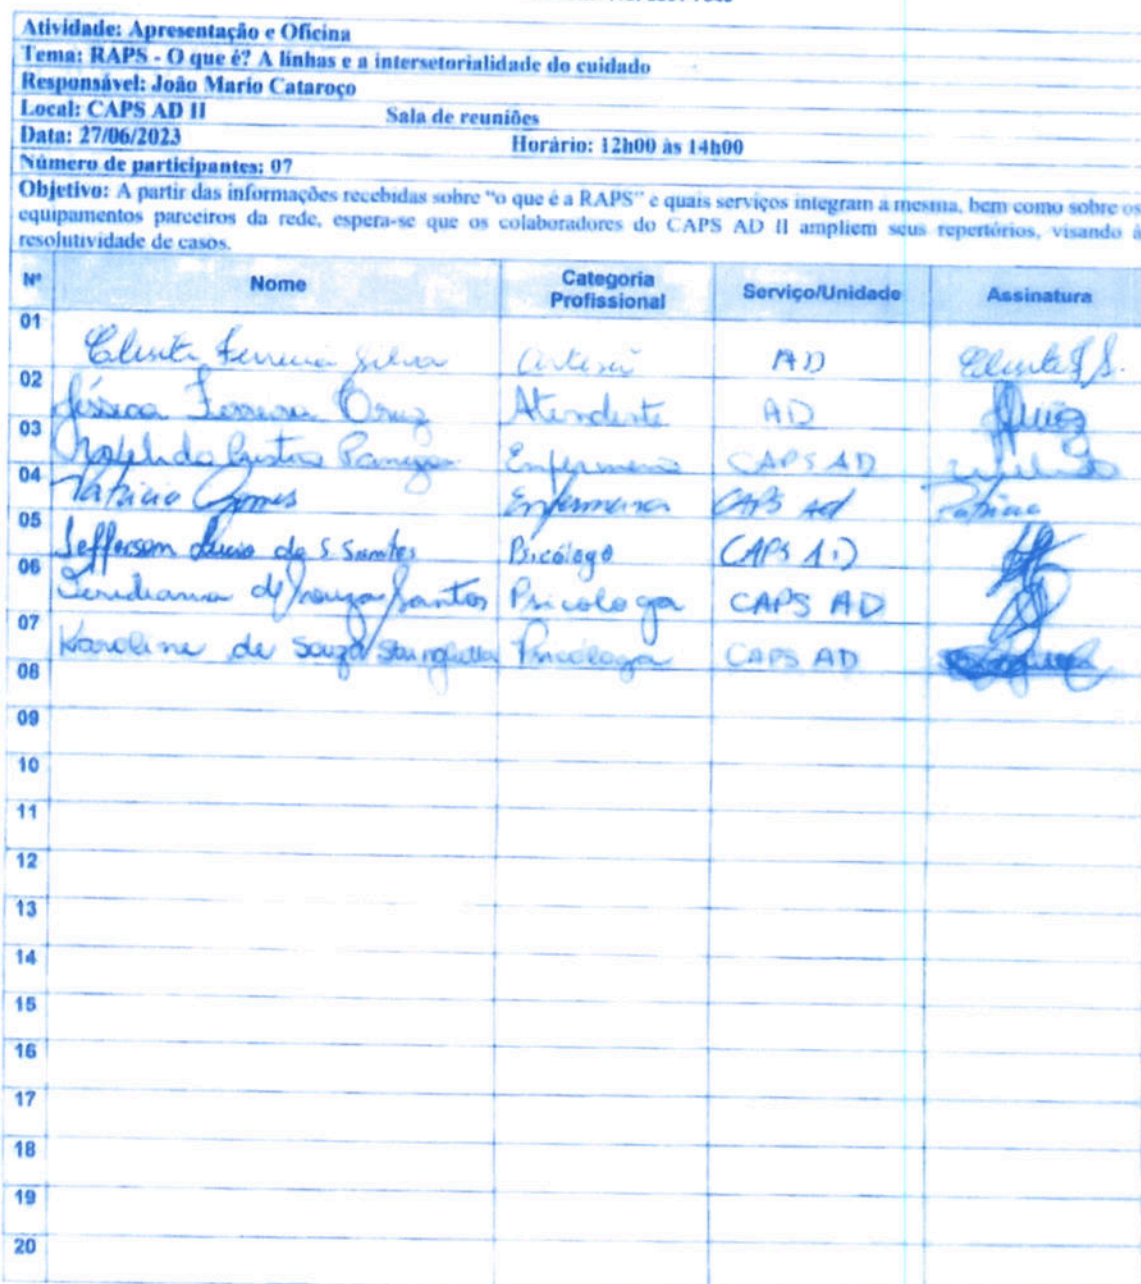 Atividade: Apresentação e Oficina
Tema: RAPS - O que é? A linhas e a intersetorialidade do cuidado
Responsável: João Mario Cataroço
Local: CAPS AD II Sala de reuniões
Data: 27/06/2023 Horário: 12h00 às 14h00
Número de participantes: 07
Objetivo: A partir das informações recebidas sobre “o que é a RAPS” e quais serviços integram a mesma, bem como sobre os
equipamentos parceiros da rede, espera-se que os colaboradores do CAPS AD II ampliem seus repertórios, visando à
resolutividade de casos.
Nº Nome Categoria Profissional Serviço/Unidade Assinatura
01 Ferreira Silva artesã AD
02 Jéssica Ferreira Cruz Atendente AD
03 Enfermeira CAPS AD
04 Patricia Gomes Enfermeira CAPS Ad Patricia
05 Jefferson de S. Santos Psicólogo CAPS AD
06 de Souza Santos Psicologa CAPS AD
07 Karoline de Souza Psicologa CAPS AD
08
09
10
11
12
13
14
15
16
17
18
19
20